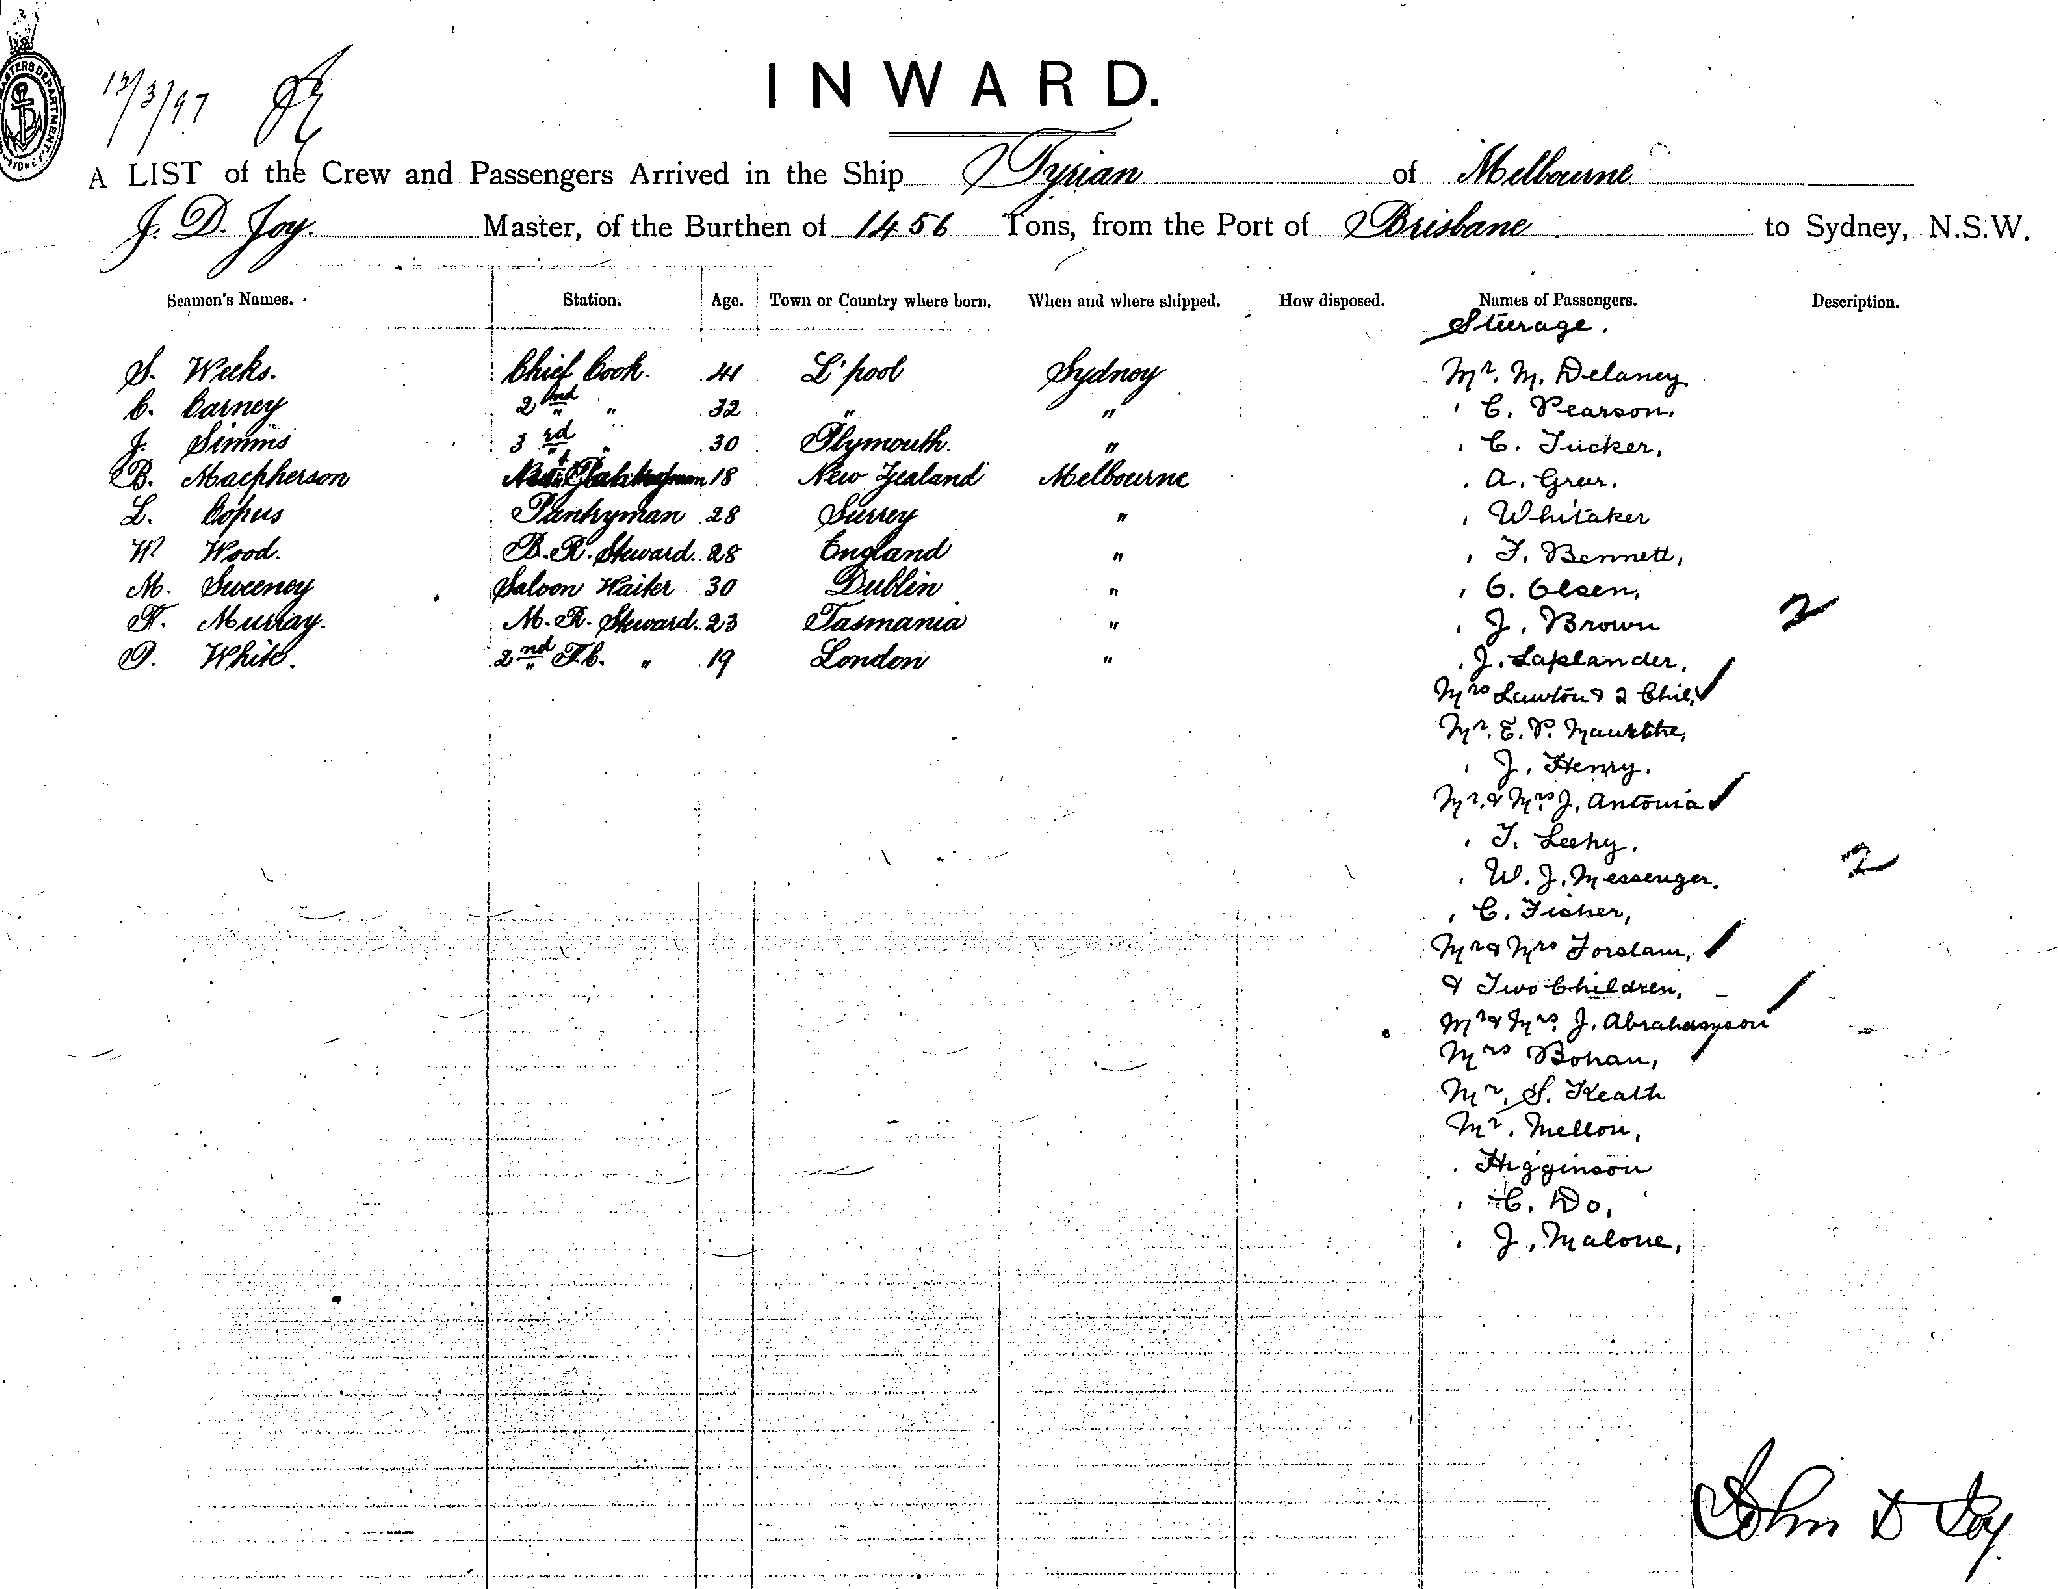 13/3/97
INWARD.
A LIST of the Crew and Passengers Arrived in the Ship Tyrian of Melbourne
J. D. Joy. Master, of the Burthen of 1456 Tons, from the Port of Brisbane to Sydney, N.S.W.
Seamen's Names. Station. Age. Town or Country where born. When and where shipped. How disposed. Names of Passengers. Description.
Steerage.
S. Weeks. Chief Cook. 41 L'pool Sydney Mr. M. Delaney
C. Carney 2nd " 32 " " " C. Pearson.
J. Simms 3rd " 30 Plymouth. " " C. Tucker,
B. Macpherson 18 New Zealand Melbourne " A. Greer.
L. Copus Pantryman 28 Surrey " " Whitaker
W Wood. B. R. Steward. 28 England " " F. Bennett,
M. Sweeney Saloon Waiter 30 Dublin " " C. Olsen,
Murray. M. R. Steward. 23 Tasmania " " J. Brown 2
White. 2nd F.C. " 19 London " " J. Laplander,
Mrs Lawton & 2 Chil.
Mr. E. P.
" J. Henry.
Mr. & Mrs J. Antonia
" T. Leehy.
" W. J. Messenger. 2
" C. Fisher,
Mr & Mrs Forslam,
& Two Children,
Mr & Mrs J. Abrahamson
Mrs Bohan,
Mr. S. Keath
Mr. Mellon,
" Higginson
" C. Do,
" J. Malone,
John D Joy